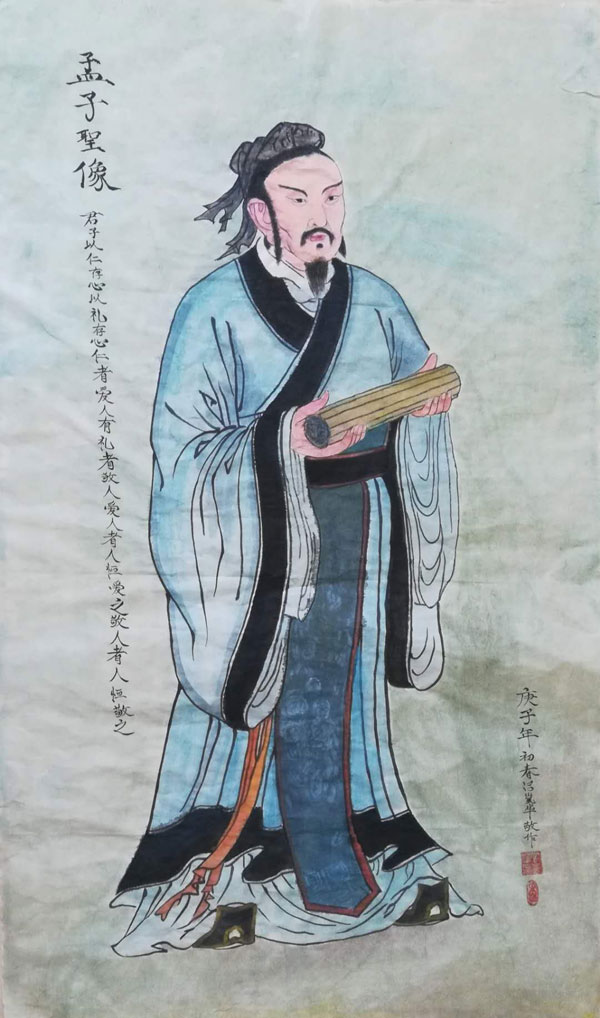 孟子聖像
君子以仁存心以礼存心仁者爱人有礼者敬人爱人者人恒爱之敬人者人恒敬之
庚子年初春吕嵐华敬作